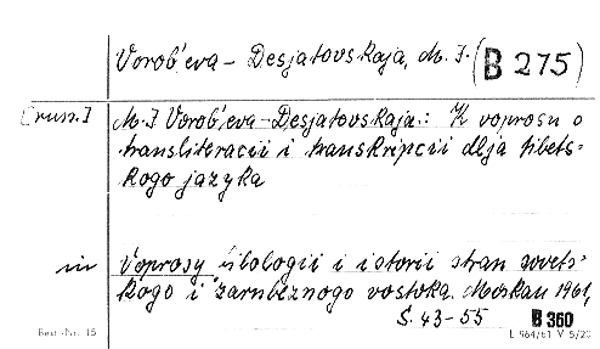 Vorob'eva - Desjatovskaja, M. I. (B 275)
[russ.] M. I Vorob'eva-Desjatovskaja.: K voprosu o
transliteracii i transkripcii dlja tibets-
kogo jazyka
in Voprosy filologii i istorii stran sovets-
kogo i zarubeznogo vostoka. Moskau 1961,
S. 43-55 B 360
Best.-Nr. 15 L 964/61 V 5/20